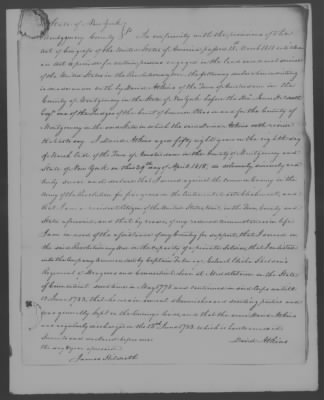 State of New York
Montgomery County } Ss In conformity with the provisions of the
Act of Congress of the United States of America passed 18 March 1818 entitled
an act to provide for certain persons engaged in the land and naval service
of the United States in the Revolutionary war, the following declaration in writing
is made on oath by David Atkins of the Town of Amsterdam in the
County of Montgomery in the State of New York before the Hon James Hildreth
Esqr one of the Judges of the Court of Common Pleas in and for the County of
Montgomery in the said State in which the said David Atkins
I David Atkins aged fifty eight years on the eighth day
of March last of the Town of Amsterdam in the County of Montgomery and
State of New York on this 29th day of April 1818, do solemnly sincerely and
truly swear and declare that I served against the common enemy in the
Army of the Revolution for nine months on the Continental establishment, and
that I am a resident Citizen of the United States in the Town County and
State aforesaid, and that by reason of my reduced circumstances in life
I am in need of the assistance of my Country for support, that I served in
the said Revolutionary War in the capacity of a private Soldier, that I enlisted
into the Company commanded by Captain in Colonel Elisha Sheldon's
Regiment of Dragoons and Connecticut Line at Middletown in the State
of Connecticut sometime in May 1778 and continued in said Corps untill
13 June 1783, that he was in several Skirmishes and scouting parties and
was generally kept on the lines and that the said David Atkins
was regularly discharged on the 13th June 1783 which is hereto annexed
Sworn to and declared before me David Atkins
the day & year aforesaid
James Hildreth